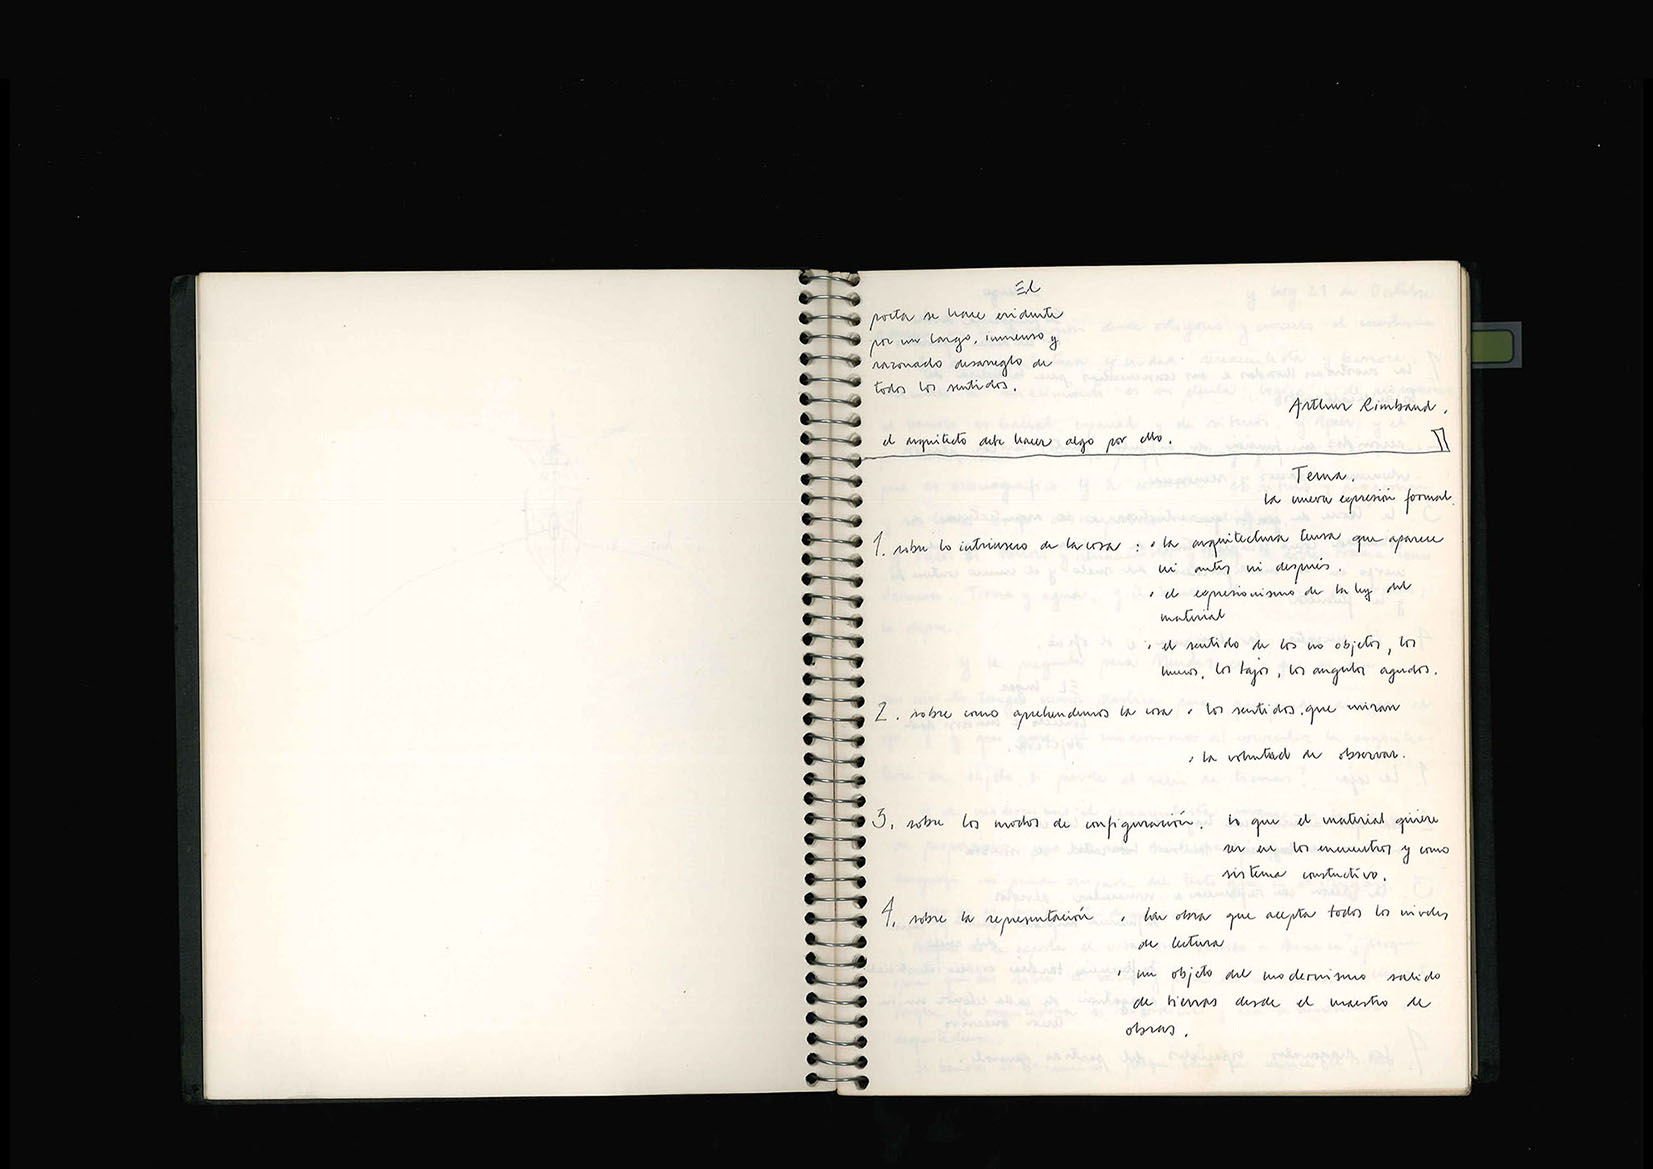 El
poeta se hace evidente
por un largo, inmenso y
razonado desarreglo de
todos los sentidos.
Arthur Rimbaud.
el arquitecto debe hacer algo por ello.
Tema.
la nueva expresión formal.
1. sobre lo intrinseco de la cosa : . la arquitectura tensa que aparece
ni antes ni después.
. el expresionismo de la ley del
material
. el sentido de los no objetos, los
muros, los tajos, los angulos agudos.
2. sobre como aprehendemos la cosa . los sentidos que miran
. la voluntad de observar.
3. sobre los modos de configuración. lo que el material quiere
ser en los encuentros y como
sistema constuctivo.
4. sobre la representación . una obra que acepta todos los niveles
de lectura
. un objeto del modernismo salido
de tierras desde el maestro de
obras.